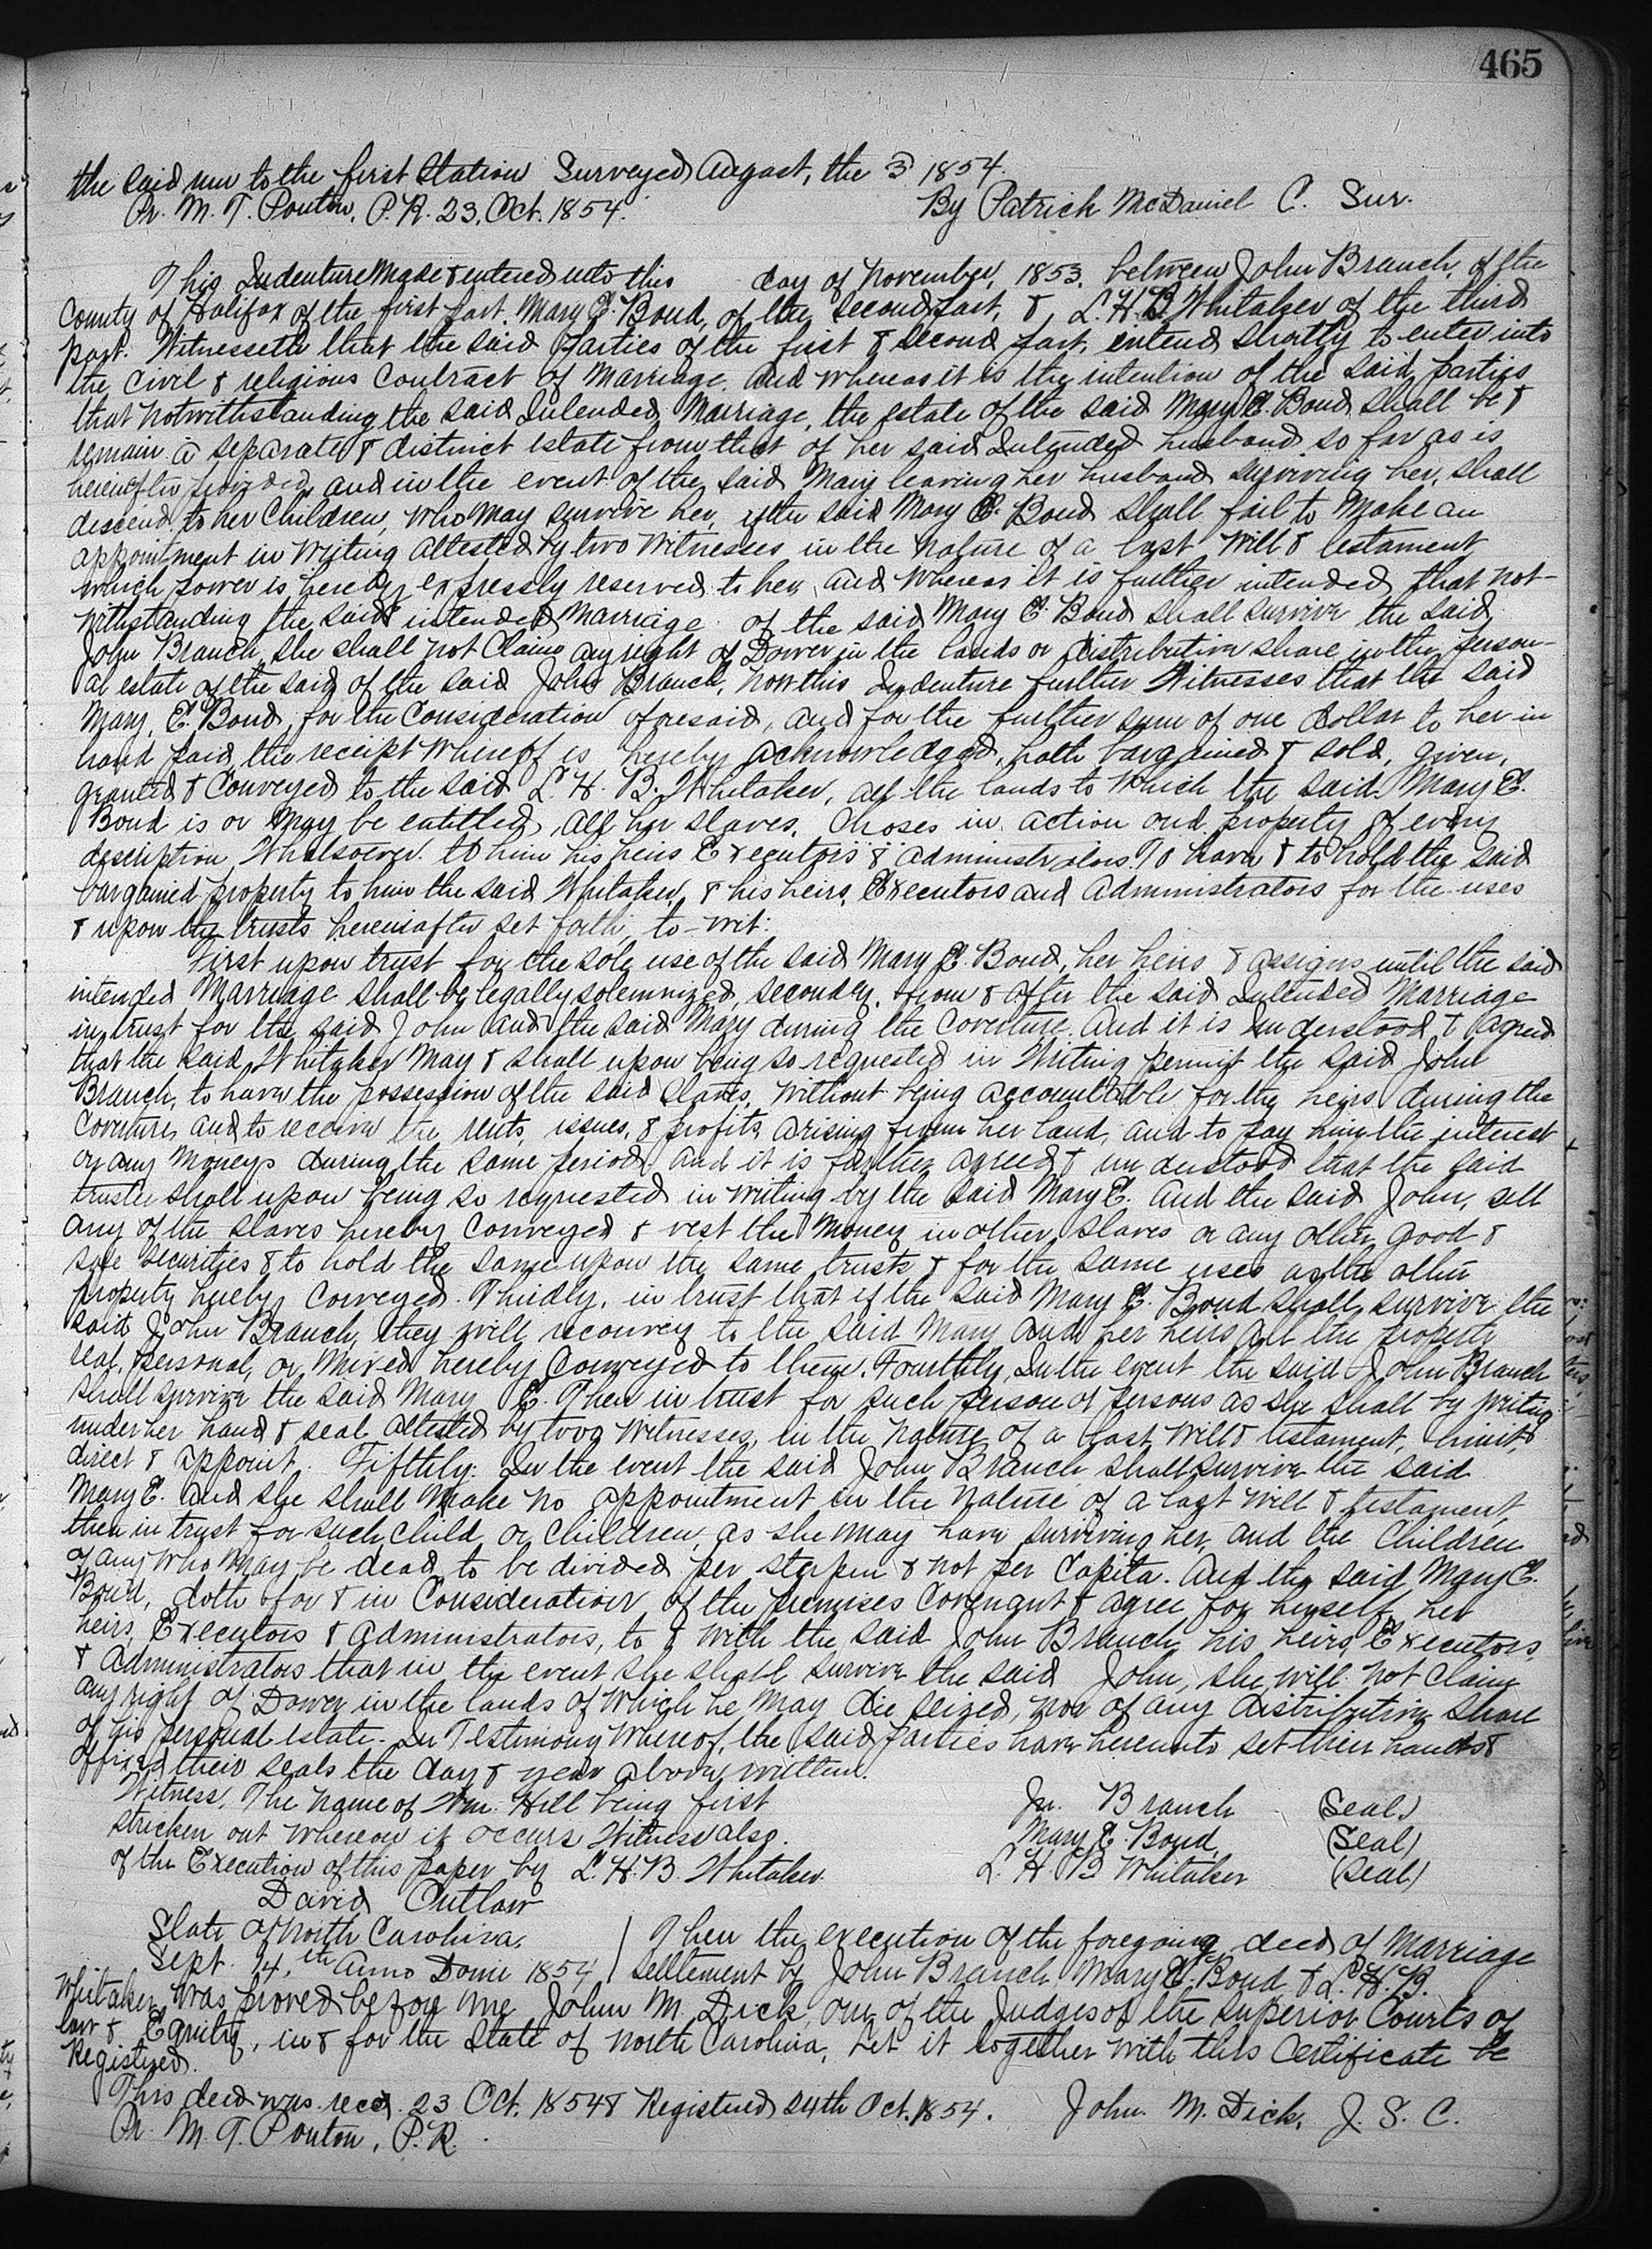 465
the said run to the first Station Surveyed August, the 3 1854.
Pr. M. T. Ponton, P. R. 23, Oct. 1854.
By Patrick McDaniel C. Sur.
This Indenture made & entered into this day of November, 1853, between John Branch, of the
County of Halifax of the first part, Mary E. Bond, of the second part, & L. H. B. Whitaker of the third
part. Witnesseth that the said parties of the first & second part, entend shortly to enter into
the civil & religious contract of marriage, and whereas it is the intention of the said parties
that notwithstanding the said Intended Marriage, the estate of the said Mary E. Bond shall be &
remain a separate & distinct estate from that of her said Intended husband so far as is
hereinafter provided and in the event of the said Mary leaving her husband surviving her, shall
descend to her Children, who may survive her, if the said Mary E. Bond shall fail to make an
appointment in writing attested by two witnesses in the nature of a last will & testament
which power is hereby expressly reserved to her, and whereas it is further intended that not-
withstanding the said intended marriage of the said Mary E. Bond shall survive the said
John Branch, she shall not Claim any right of Dower in the lands or distributive share in the person-
al estate of the said of the said John Branch, now this Indenture further Witnesses that the said
Mary, E. Bond, for the Consideration aforesaid, and for the further sum of one dollar to her in
hand paid, the receipt whereof is hereby acknowledged, hath bargained & sold, given,
granted & Conveyed to the said L. H. B. Whitaker, all the lands to which the said Mary E.
Bond is or may be entitled, all her slaves, choses in action and property of every
discription whatsoever to him his heirs Executors & administrators. To have & to hold the said
bargained property to him the said Whitaker, & his heirs, Executors and administrators for the uses
& upon the trusts hereinafter set forth, to-wit:
First upon trust for the sole use of the said Mary E. Bond, her heirs & assigns until the said
intended Marriage shall be legally solemnized, secondly, from & after the said Intended Marriage
in trust for the said John and the said Mary during the coverture. And it is understood & agreed
that the said Whitaker may & shall upon being so requested in writing permit the said John
Branch, to have the possession of the said slaves, without being accountable for the heirs during the
Coverture, and to receive the rents, issues, & profits arising from her land, and to pay him the interest
on any moneys during the same period. And it is further agreed & understood that the said
trustee shall upon being so requested in writing by the said Mary E. and the said John, sell
any of the slaves hereby Conveyed & vest the money in other slaves or any other good &
safe securities & to hold the same upon the same trusts & for the same uses as the other
property hereby Conveyed. Thirdly, in trust that if the said Mary E. Bond shall survive the
said John Branch, they will reconvey to the said Mary and her heirs all the property
real, personal, or mixed hereby Conveyed to them. Fourthly, In the event the said John Branch
shall survive the said Mary E. Then in trust for such person or persons as she shall by writing
under her hand & seal attested by two witnesses, in the nature of a last will & testament, limit,
direct & appoint. Fifthly: In the event the said John Branch shall survive the said
Mary E. and she shall make no appointment in the nature of a last will & testament,
then in trust for such child or children, as she may have surviving her, and the Children
of any who may be dead, to be divided per sterpen & not per Capita. And the said Mary E.
Bond, doth for & in Consideration of the premises covenant & agree for herself, her
heirs, Executors & administrators, to & with the said John Branch, his heirs, Executors,
& administrators that in the event she shall survive the said John, she will not claim
any right of Dower in the lands of which he may die seized, nor of any distributive share
of his personal estate. In Testimony whereof, the said parties have hereunto set their hands &
affixed their seals the day & year above written.
Witness, The name of Wm. Hill being first
stricken out whereon it occurs Witness also.
of the Execution of this paper by L. H. B. Whitaker.
David Outlaw
Jn. Branch (Seal)
Mary E. Bond, (Seal)
L. H. B Whitaker (Seal)
State of North Carolina,
Sept. 14,th Anno Domi 1854
Then the execution of the foregoing deed of Marriage
settlement by John Branch, Mary E. Bond & L. H. B.
Whitaker, was proved before me John M. Dick, one of the Judges of the superior Courts of
law & Equity, in & for the State of North Carolina, Let it together with this Certificate be
Registered.
This deed was recd. 23 Oct. 1854 & Registered 24th Oct. 1854.
John. M. Dick, J. S. C.
Pr. M. T. Ponton, P. R.